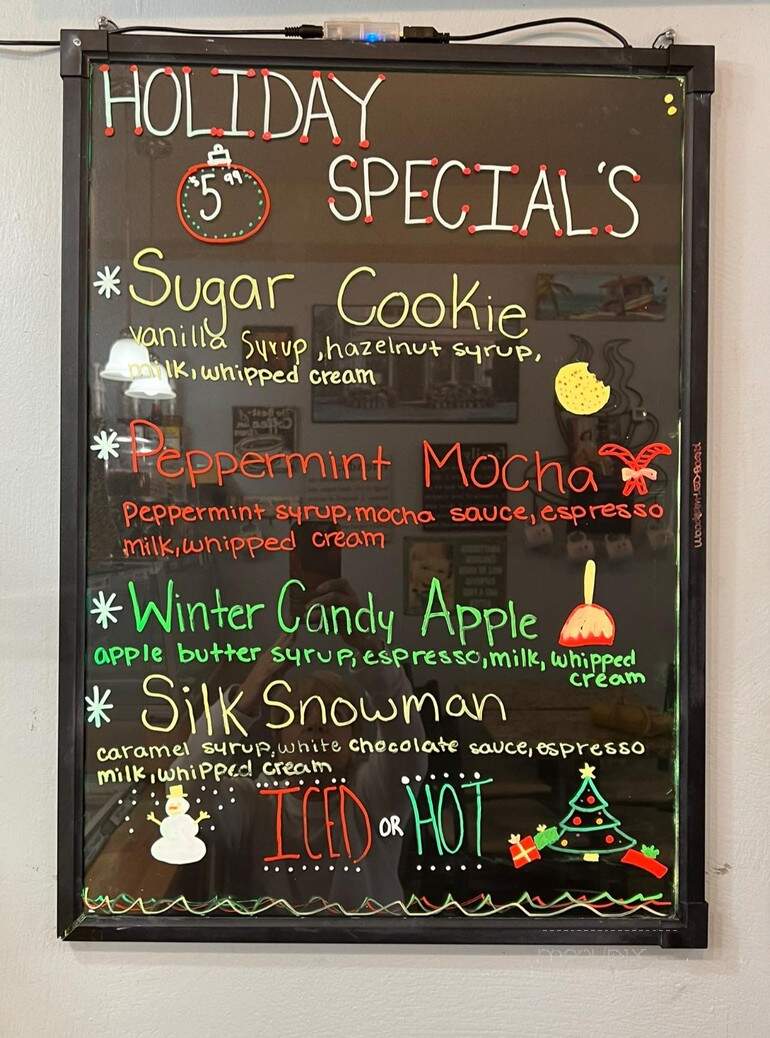 HOLIDAY
$5.99
SPECIAL'S
* Sugar Cookie
vanilla syrup, hazelnut syrup,
milk, whipped cream
* Peppermint Mocha
Peppermint syrup, mocha sauce, espresso
milk, whipped cream
* Winter Candy Apple
apple butter syrup, espresso, milk, whipped
cream
* Silk Snowman
caramel syrup, white chocolate sauce, espresso
milk, whipped cream
ICED OR HOT